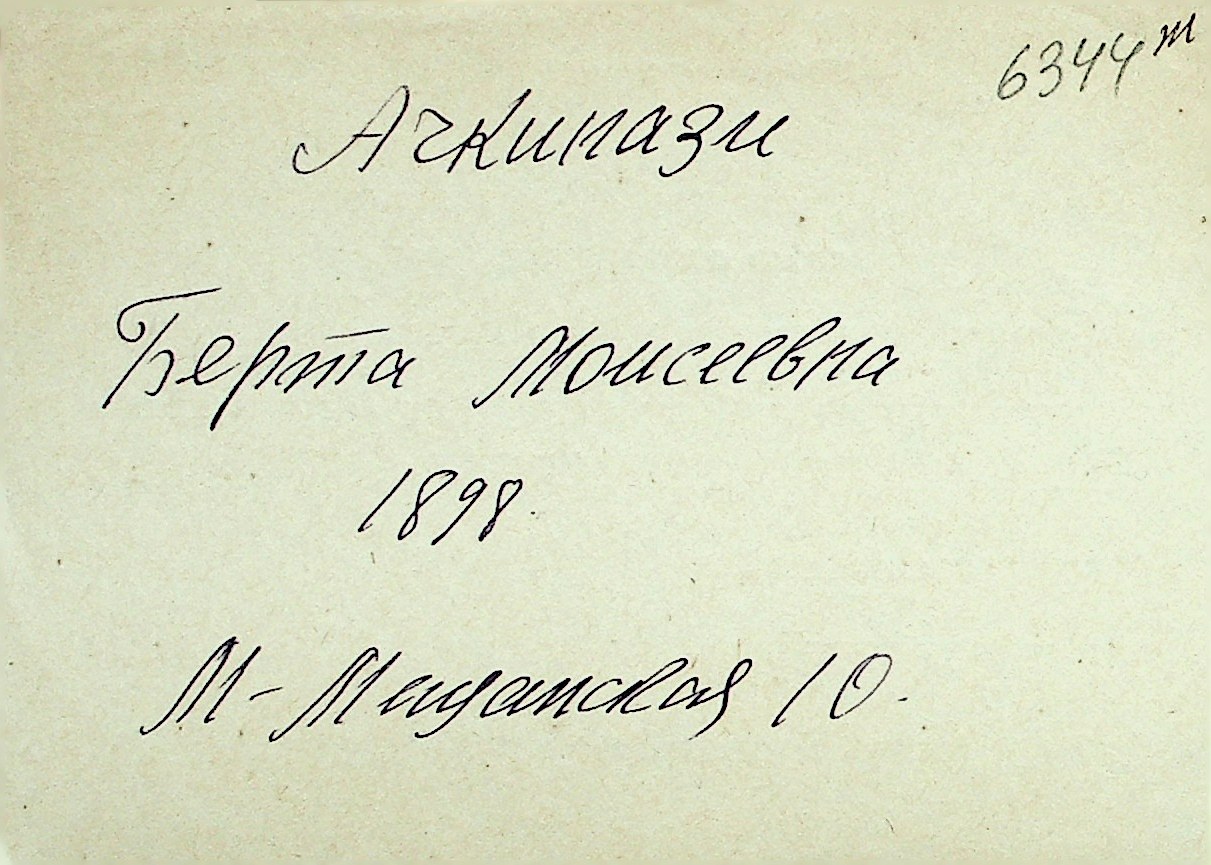 6344 т
Ачкинази
Берта Моисеевна
1898
М-Мещанская 10.